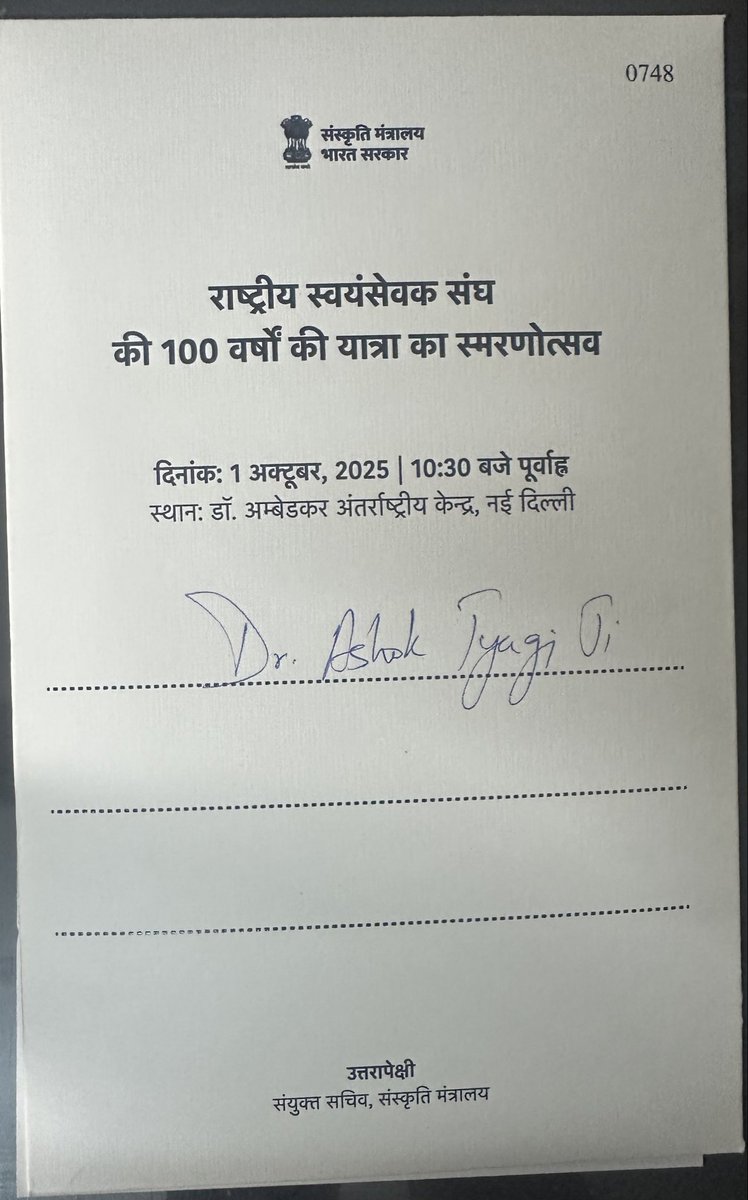 0748
संस्कृति मंत्रालय
भारत सरकार
राष्ट्रीय स्वयंसेवक संघ
की 100 वर्षों की यात्रा का स्मरणोत्सव
दिनांक: 1 अक्टूबर, 2025 | 10:30 बजे पूर्वाह्न
स्थान: डॉ. अम्बेडकर अंतर्राष्ट्रीय केन्द्र, नई दिल्ली
Dr. Ashok Tyagi Ji
उत्तरापेक्षी
संयुक्त सचिव, संस्कृति मंत्रालय